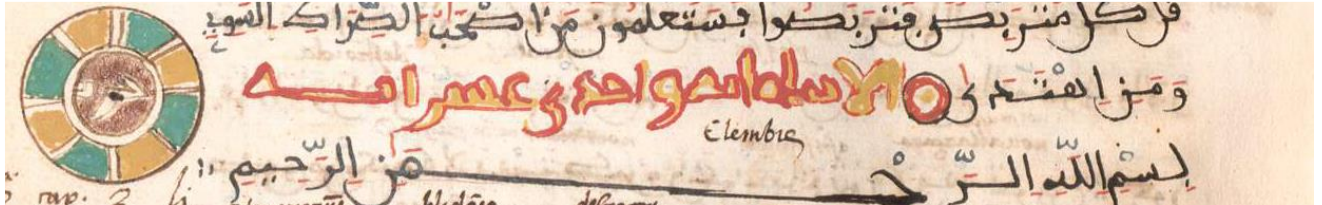 قُلْ كُلٌّ مُّتَرَبِّصٌ فَتَرَبَّصُوا فَسَتَعْلَمُونَ مَنَ اصْحَٰبُ الصِّرَٰطِ السَّوِيِّ
وَمَنِ اهْتَدَىٰ الانبياء مايه واحدى عشر ايه
Elembie
بِسْمِ اللَّهِ الرَّحْمَٰنِ الرَّحِيمِ
cap. 2.